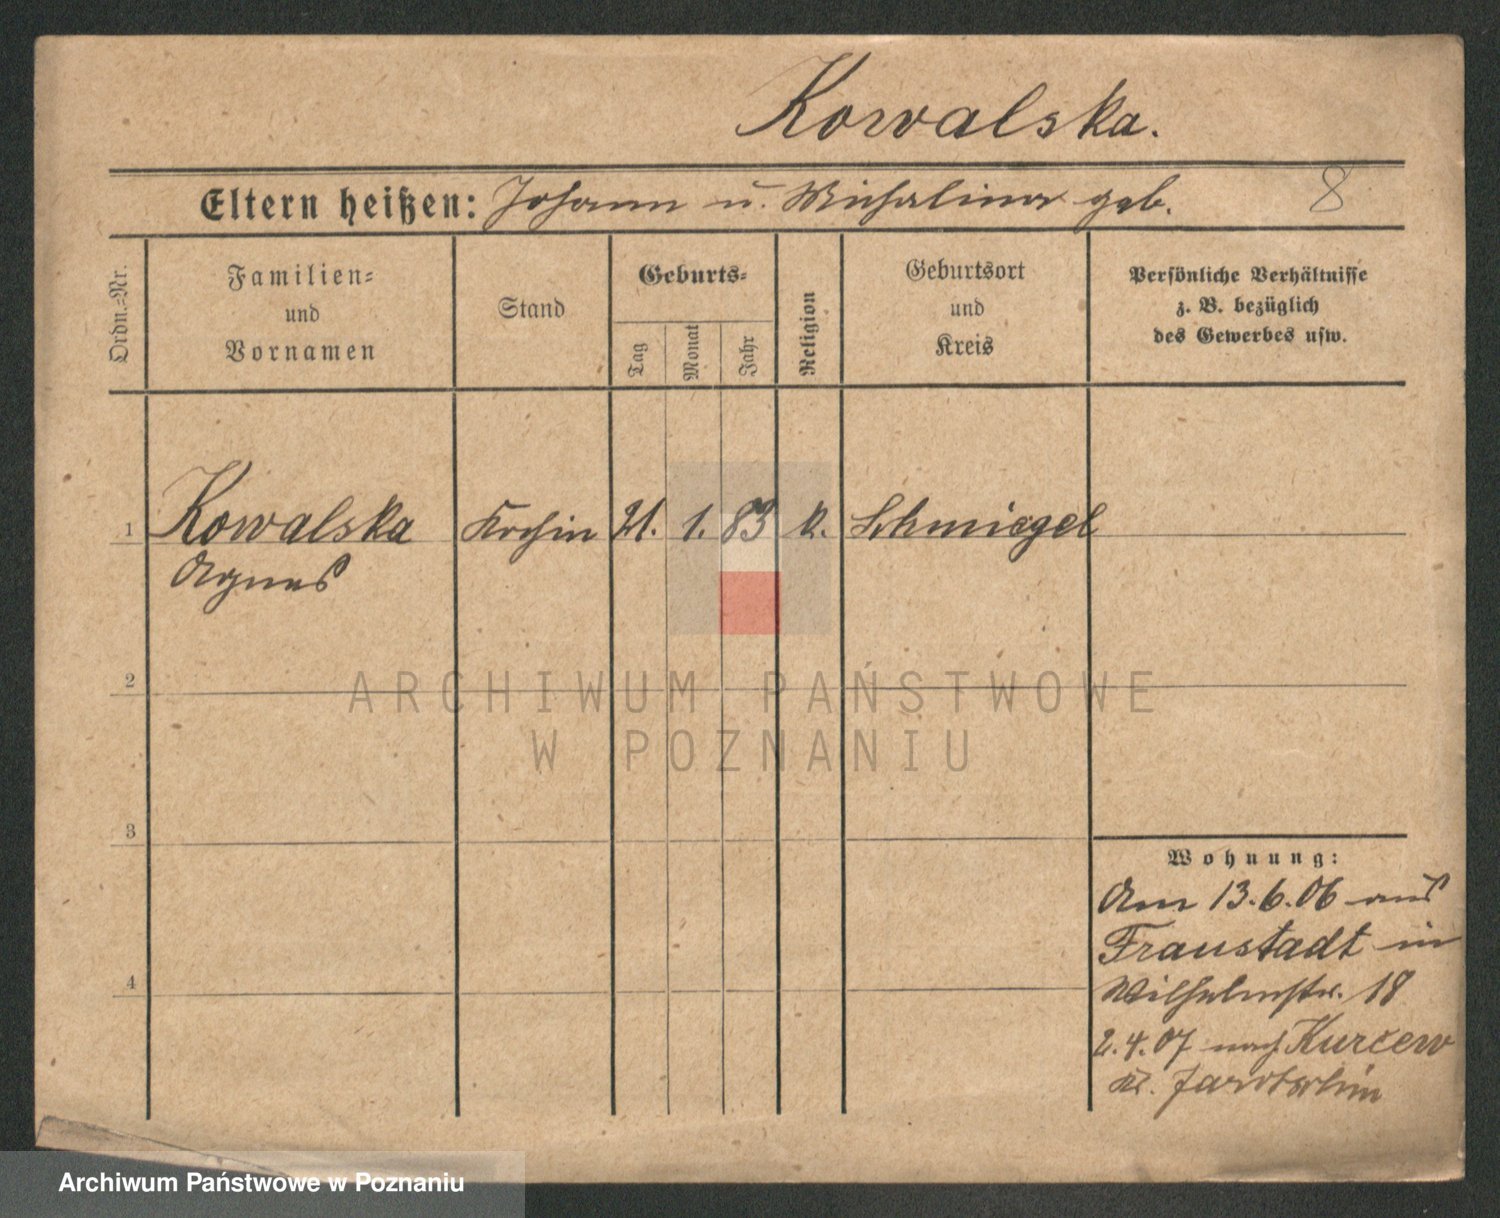 Kowalska.
Eltern heißen: Johann u. Michalina geb. 8
Ordn.-Nr.
Familien-
und
Vornamen
Stand
Geburts-
Tag
Monat
Jahr
Religion
Geburtsort
und
Kreis
Persönliche Verhältnisse
z. B. bezüglich
des Gewerbes usw.
1 Kowalska Köchin 21. 1. 83 k. Schmiegel
Agnes
2
ARCHIWUM PAŃSTWOWE
W POZNANIU
3
4
Wohnung:
Am 13.6.06 aus
Fraustadt in
Wilhelmstr. 18
2.4.07 nach Kurcew
Kr. Jarotschin
Archiwum Państwowe w Poznaniu